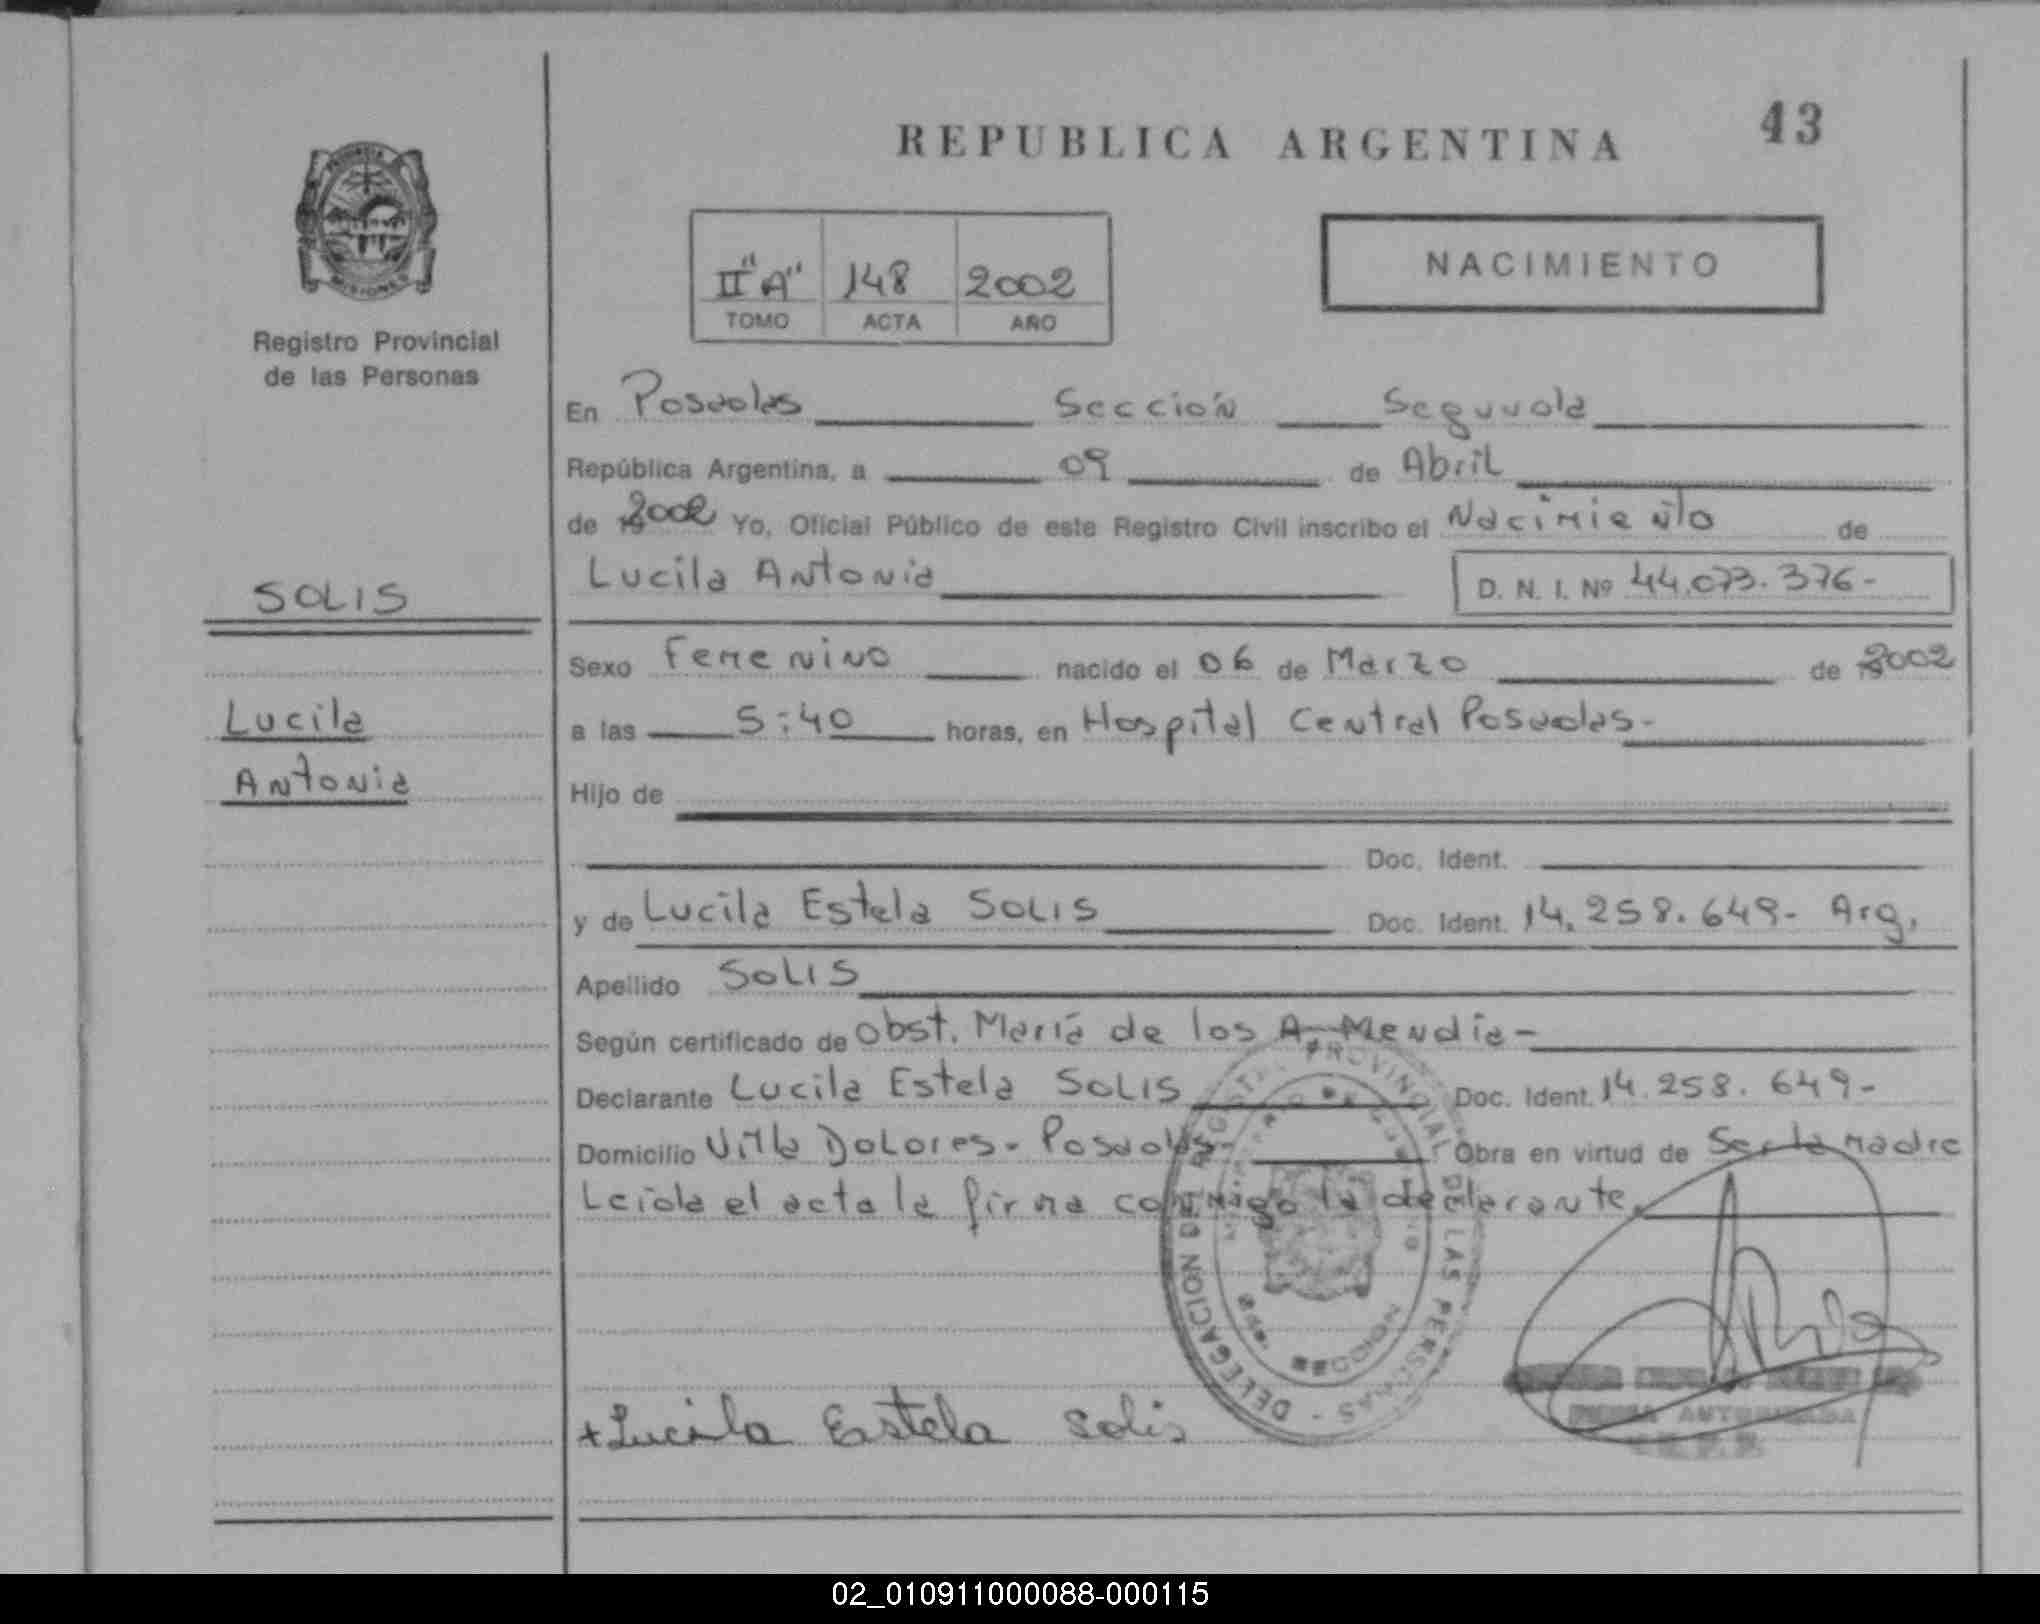 REPUBLICA ARGENTINA
43
II "A" 148 2002
TOMO ACTA AÑO
NACIMIENTO
Registro Provincial
de las Personas
En Posadas Sección Segunda
República Argentina, a 09 de Abril
de 2002 Yo, Oficial Público de este Registro Civil inscribo el Nacimiento de
Lucila Antonia D. N. I. Nº 44.073.376-
SOLIS
Lucila
Antonia
Sexo Femenino nacido el 06 de Marzo de 2002
a las 5:40 horas, en Hospital Central Posadas-
Hijo de
Doc. Ident.
y de Lucila Estela SOLIS Doc. Ident. 14.258.649- Arg.
Apellido SOLIS
Según certificado de Obst. María de los A. Mendia-
Declarante Lucila Estela SOLIS Doc. Ident. 14.258.649-
Domicilio Villa Dolores- Posadas- Obra en virtud de Ser la madre
Leida el acta la firma conmigo la declarante.
DELEGACION DEL REGISTRO PROVINCIAL DE LAS PERSONAS -
MINISTERIO DE GOBIERNO
+Lucila Estela Solis
FIRMA AUTORIZADA
02_010911000088-000115